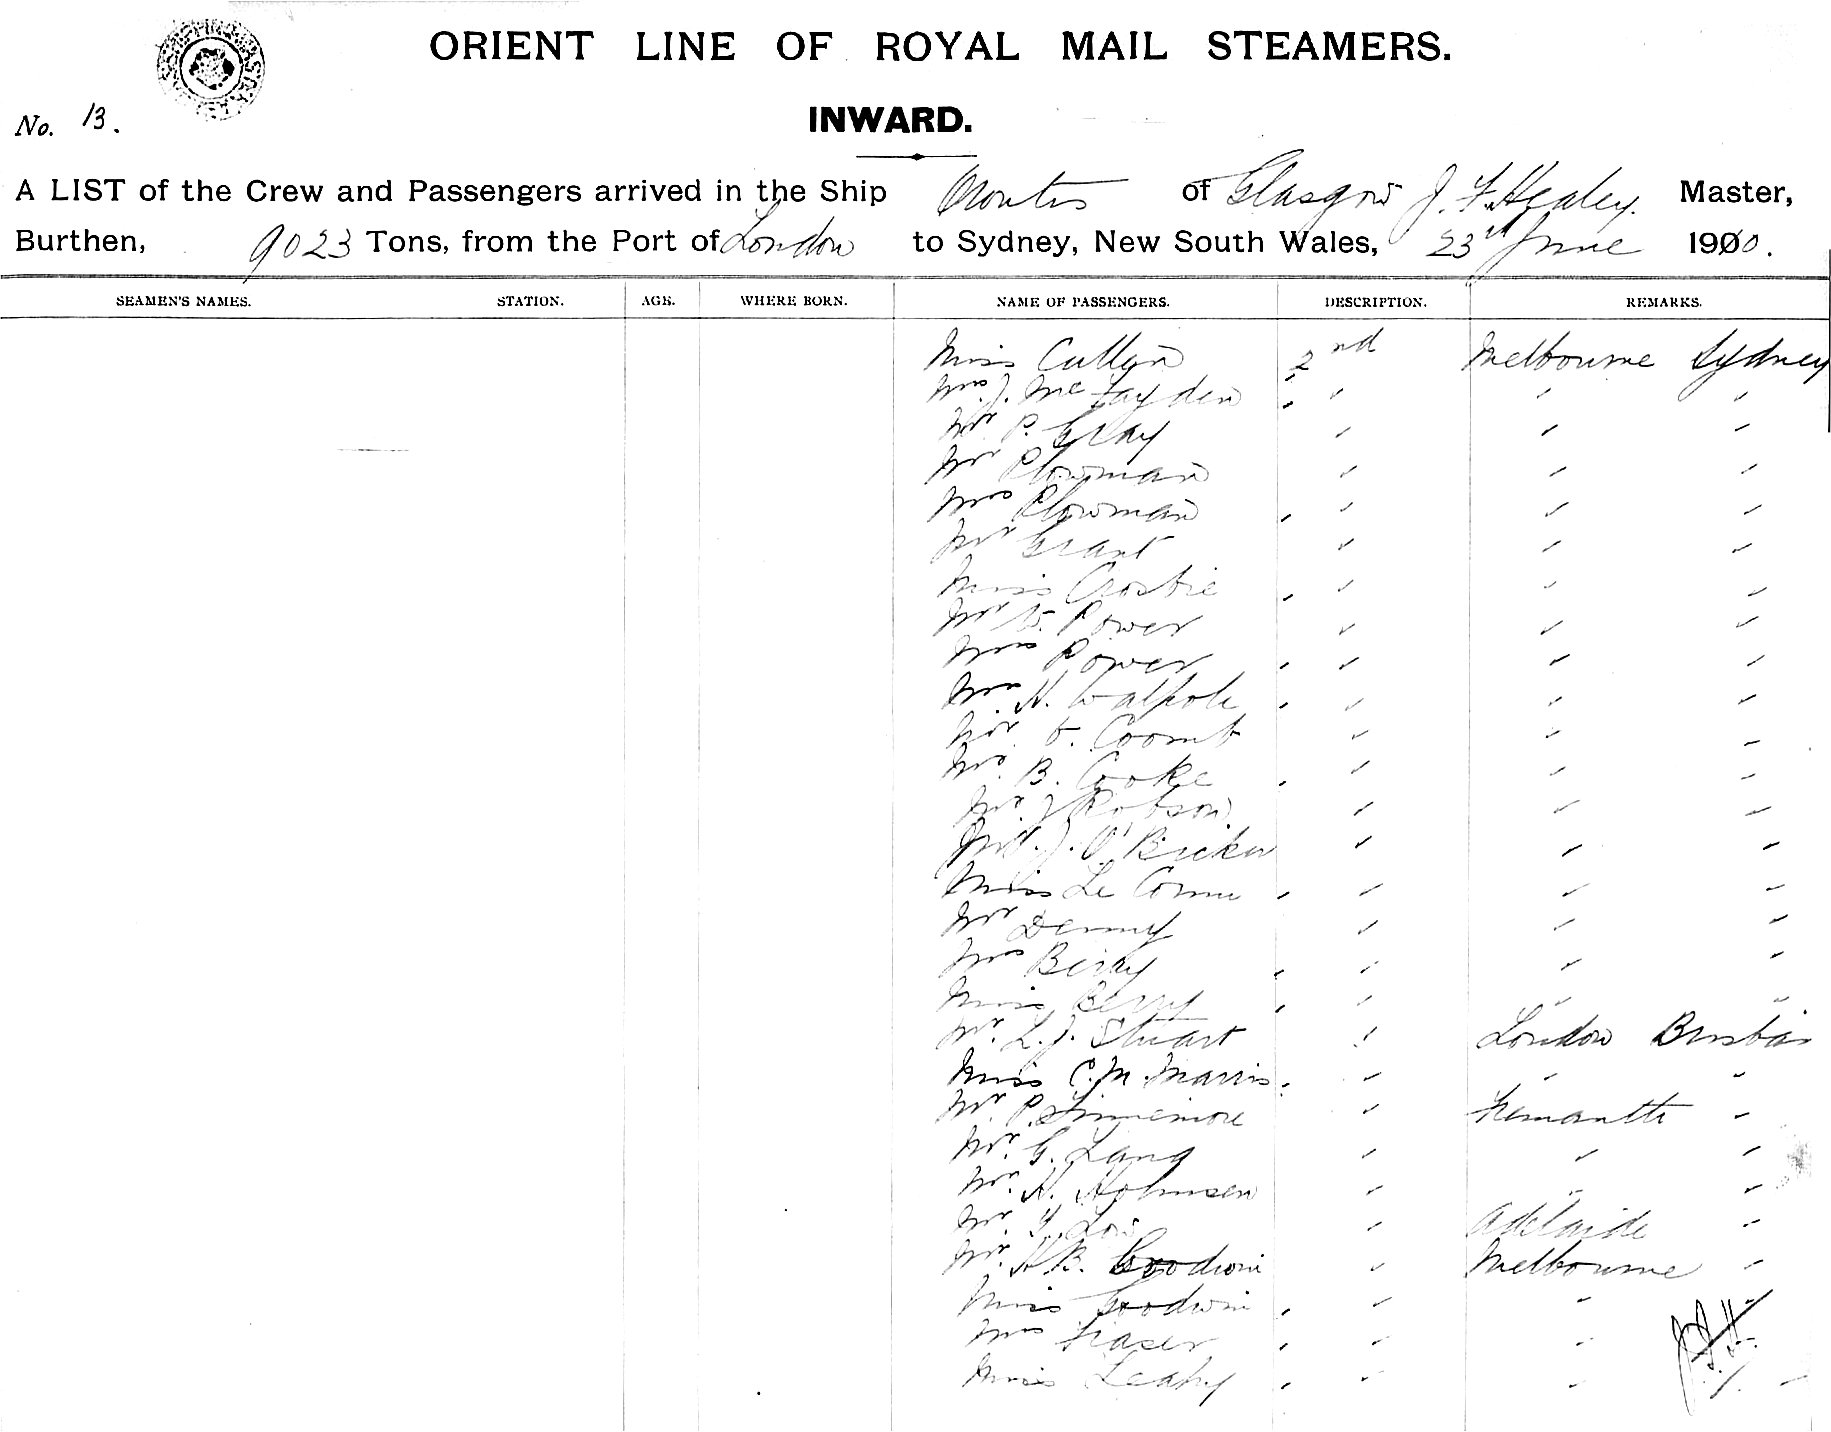 ORIENT LINE OF ROYAL MAIL STEAMERS.
INWARD.
No. 13.
A LIST of the Crew and Passengers arrived in the Ship Orontes of Glasgow J. F. Healey. Master,
Burthen, 9023 Tons, from the Port of London to Sydney, New South Wales, 23rd June 1900.
SEAMEN'S NAMES. STATION. AGE. WHERE BORN. NAME OF PASSENGERS. DESCRIPTION. REMARKS.
Miss Cullen 2nd Melbourne Sydney
Mrs. J. McFayden " " "
Mr P. Gray " " "
Mr Plowman " " "
Mrs Plowman " " "
Mr Grant " " "
Miss Crosbie " " "
Mr W. Power " " "
Mrs Power " " "
Mrs H. Walpole " " "
Mr Coomb " " "
B. Cooke " " "
Mr J Robson " " "
J. O' " " "
Miss Le Cornu " " "
Mr Denny " " "
Mrs Berry " " "
Miss Berry " " "
Mr. L. J. Stuart " London Brisba
Miss C. M. Marris " " "
Mr. P. Finnemore " Fremantle "
Mr. G. Lang " " "
Mr. H. " " "
Mr " Adelaide "
Mr. H B. Goodwin " Melbourne "
Miss Goodwin " " "
Mrs Fraser " "
Miss Leahy " " "
J.F.H.